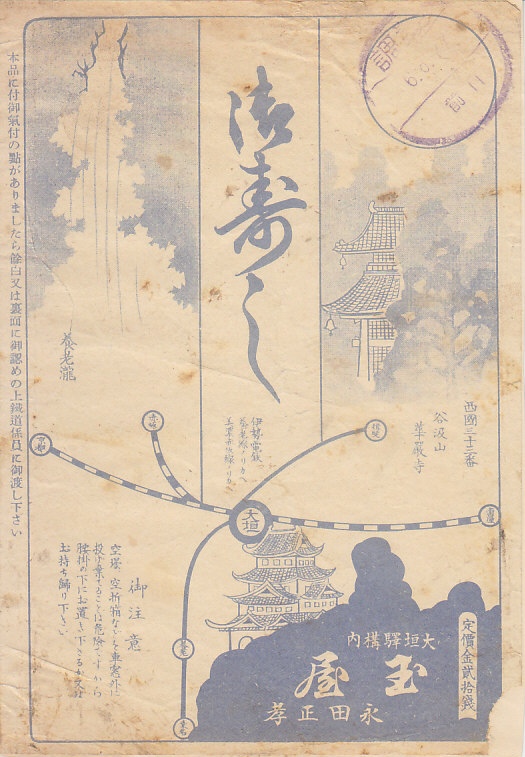 御寿し
養老瀧
西國三十三番
谷汲山
華嚴寺
本品に付御氣付の點がありましたら餘白又は裏面に御認めの上鐵道係員に御渡し下さい
伊勢電鉄
養老線ノリカヘ
大垣
御注意
空壜、空折箱などを車窓外に
投げ棄てることは危險ですから
腰掛の下にお置き下さるか又は
お持ち歸り下さい
定價金貳拾錢
大垣驛構内
玉屋
永田正孝